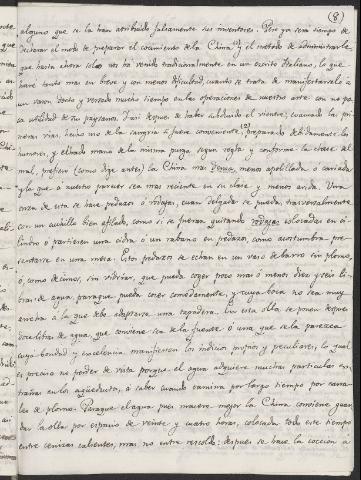 (8)
alguno que se la han atribuido falsamente sus inventores. Pero ya sera tiempo de
declarar el modo de preparar el cocimiento de la China, y el metodo de administrarle
que hasta ahora solo nos ha venido tradicionalmente en un escrito Italiano, lo que
hare tanto mas en breve y con menos dificultad, cuanto se trata de manifestarselo a
un varon docto y versado mucho tiempo en las operaciones de nuestro arte con no po-
ca utilidad de sus paysanos. Asi despues de haber subducido el vientre, evacuado las pri-
meras vias, hecho uso de la sangria si fuere conveniente, preparado debidamente los
humores, y echado mano de la misma purga segun regla y conforme a la clase del
mal, prefiero (como dige antes) la China mas densa, menos apolillada o cariada
y la que a nuestro parecer sea mas reciente en su clase y menos arida. Una
onza de esta se hace pedazos o rodajas, cuan delgada se pueda, transversalmente
con un cuchillo bien afilado, como si se fueran quitando rodajas colocadas en ci-
lindro o partieren una cidra o un rabano en pedazos, como acostumbra pre-
sentarse en una mesa. Estos pedazos se echan en un vaso de barro sin plomo,
o, como decimos, sin vidriar, que pueda coger poco mas o menos diez y seis li-
bras de agua, para que pueda cocer comodamente, y cuya boca no sea muy
ancha a la que debe adaptarse una tapadera. En esta olla se ponen despues
doce libras de agua, que conviene sea de la fuente, o una que se la parezca
cuya bondad y excelencia manifiestan los indicios propios y peculiares, lo qual
es preciso no perder de vista porque el agua adquiere muchas particulas ex-
trañas en los aqueductos, a saber cuando camina por largo tiempo por cana-
les de plomo. Para que el agua pues macere mejor la China conviene guar-
dar la olla por espacio de veinte y cuatro horas, colocada todo este tiempo
entre cenizas calientes, mas no entre rescoldo: despues se hace la coccion a